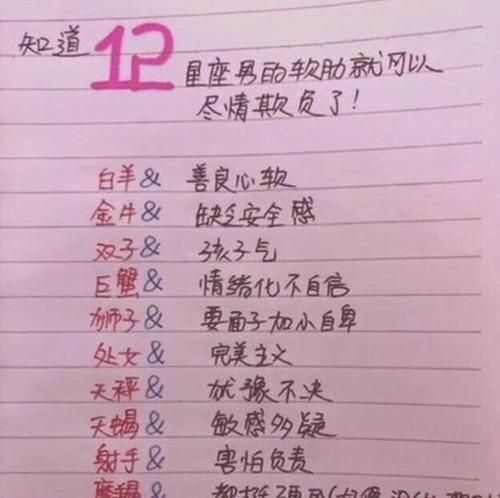 知道12星座男的软肋就可以
尽情欺负了！
白羊& 善良心软
金牛& 缺乏安全感
双子& 孩子气
巨蟹& 情绪化不自信
狮子& 要面子加小自卑
处女& 完美主义
天秤& 犹豫不决
天蝎& 敏感多疑
射手& 害怕负责
摩羯&